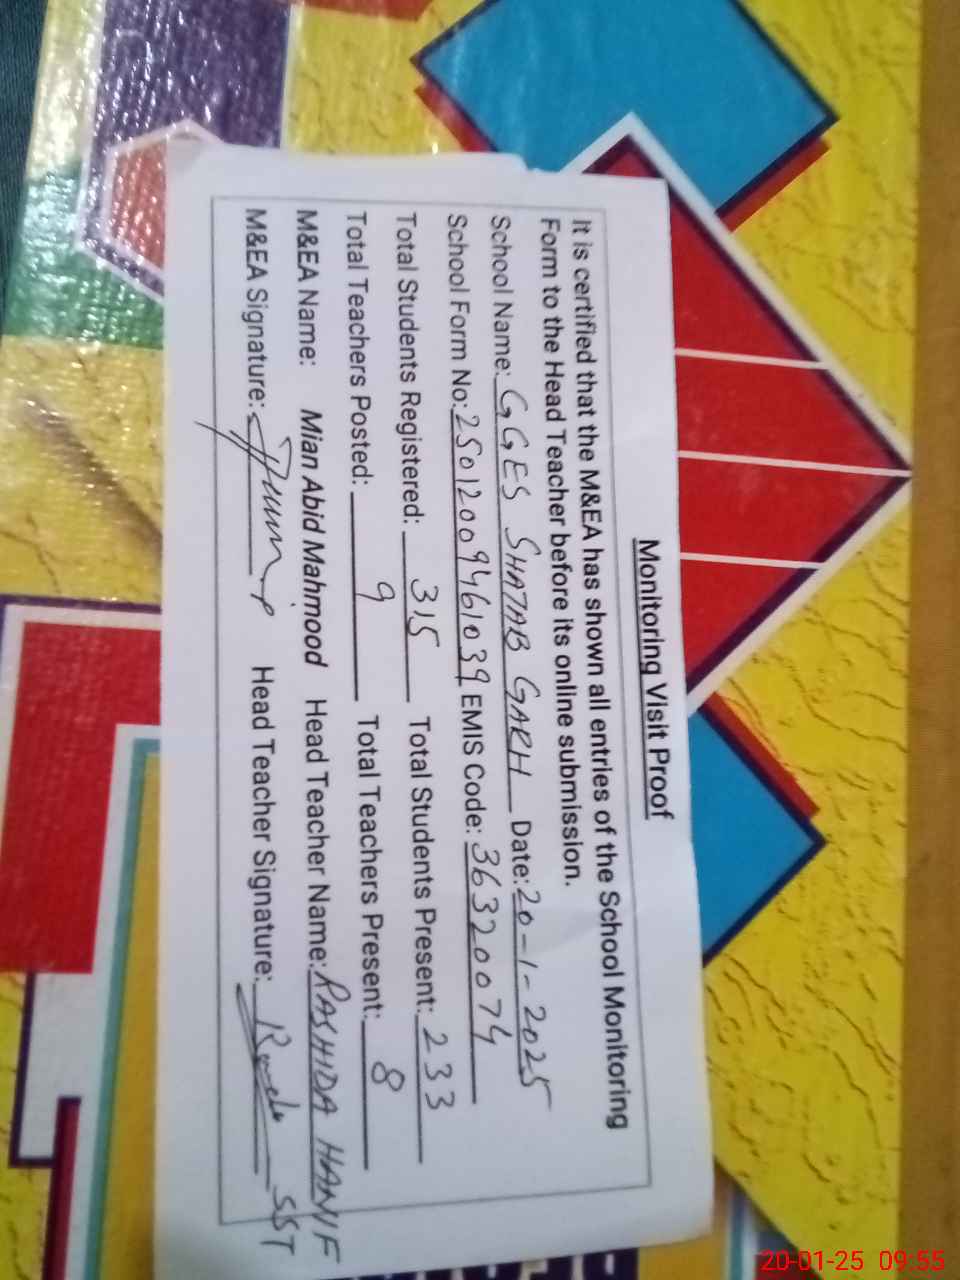 Monitoring Visit Proof
It is certified that the M&EA has shown all entries of the School Monitoring
Form to the Head Teacher before its online submission.
School Name: GGES SHATAB GARH Date: 20-1-2025
School Form No: 25012009461039 EMIS Code: 36320074
Total Students Registered: 315 Total Students Present: 233
Total Teachers Posted: 9 Total Teachers Present: 8
M&EA Name: Mian Abid Mahmood Head Teacher Name: RASHIDA HANIF
M&EA Signature: Head Teacher Signature: SST
20-01-25 09:55